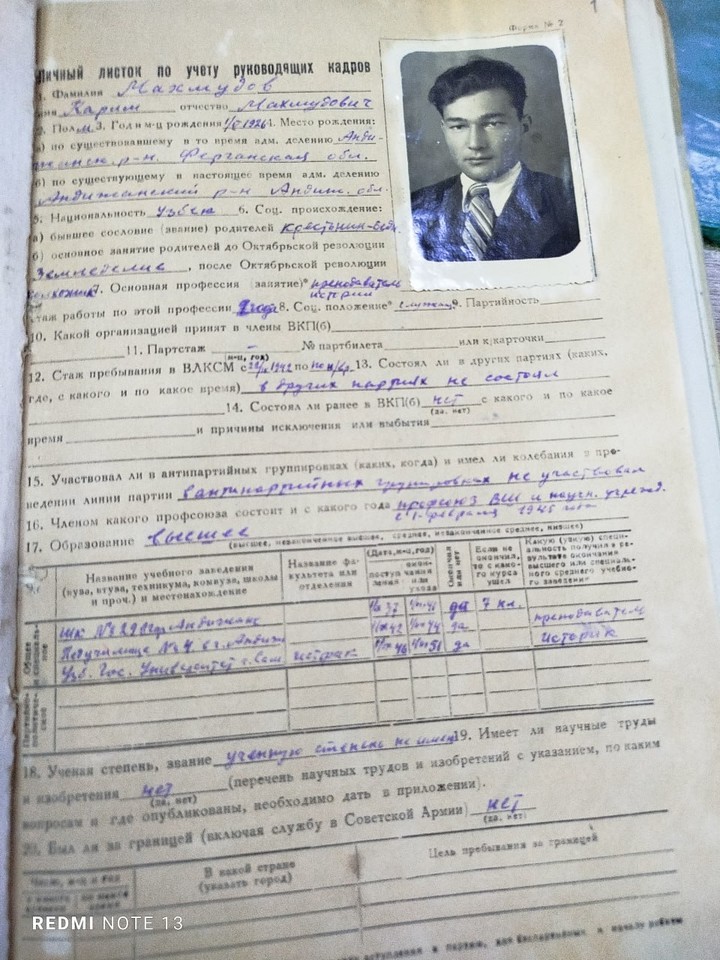 Форма № 2
1
Личный листок по учету руководящих кадров
1. Фамилия Махмудов
имя Карим отчество Махмудович
2. Пол м 3. Год и м-ц рождения 1926 4. Место рождения:
а) по существовавшему в то время адм. делению Анди-
жанск р-н. Ферганская обл.
б) по существующему в настоящее время адм. делению
Андижанский р-н Андиж. обл.
5. Национальность узбек 6. Соц. происхождение:
а) бывшее сословие (звание) родителей крестьянин
б) основное занятие родителей до Октябрьской революции
Земледелие, после Октябрьской революции
колхозник 7. Основная профессия (занятие)* преподаватель
истории
Стаж работы по этой профессии 8. Соц. положение* служащ. 9. Партийность
10. Какой организацией принят в члены ВКП(б)
11. Партстаж – № партбилета или к/карточки
(м-ц, год)
12. Стаж пребывания в ВЛКСМ с 1942 по 13. Состоял ли в других партиях (каких,
где, с какого и по какое время) в других партиях не состоял
14. Состоял ли ранее в ВКП(б) нет с какого и по какое
(да, нет)
время и причины исключения или выбытия
15. Участвовал ли в антипартийных группировках (каких, когда) и имел ли колебания в про-
ведении линии партии в антипартийных группировках не участвовал
16. Членом какого профсоюза состоит и с какого года профсоюз ВШ и научн. учрежд.
с 1 февраля 1945
17. Образование высшее
(высшее, незаконченное высшее, среднее, незаконченное среднее, низшее)
Название учебного заведения (вуза, втуза, техникума, комвуза, школы и проч.) и местонахождение
Название факультета или отделения
(Дата, м-ц, год)
поступления
окончания или ухода
Окончил или нет
Если не окончил, то с какого курса ушел
Какую (узкую) специальность получил в результате окончания высшего или специального среднего учебного заведения
Общее и специальное
Шк № г. Андижане 37 41 да 7 кл.
Педучилище № 4 в г. Андиж 42 44 да преподаватель
Узб. Гос. Университет г. Сам истфак 46 51 да историк
Партийно-политическое
18. Ученая степень, звание ученую степень не имею 19. Имеет ли научные труды
и изобретения нет (перечень научных трудов и изобретений с указанием, по каким
(да, нет)
вопросам и где опубликованы, необходимо дать в приложении).
20. Был ли за границей (включая службу в Советской Армии) нет
(да, нет)
Число, м-ц и год
с какого времени
по какое время
В какой стране
(указать город)
Цель пребывания за границей
вступления в партию, для беспартийных к началу работы
REDMI NOTE 13